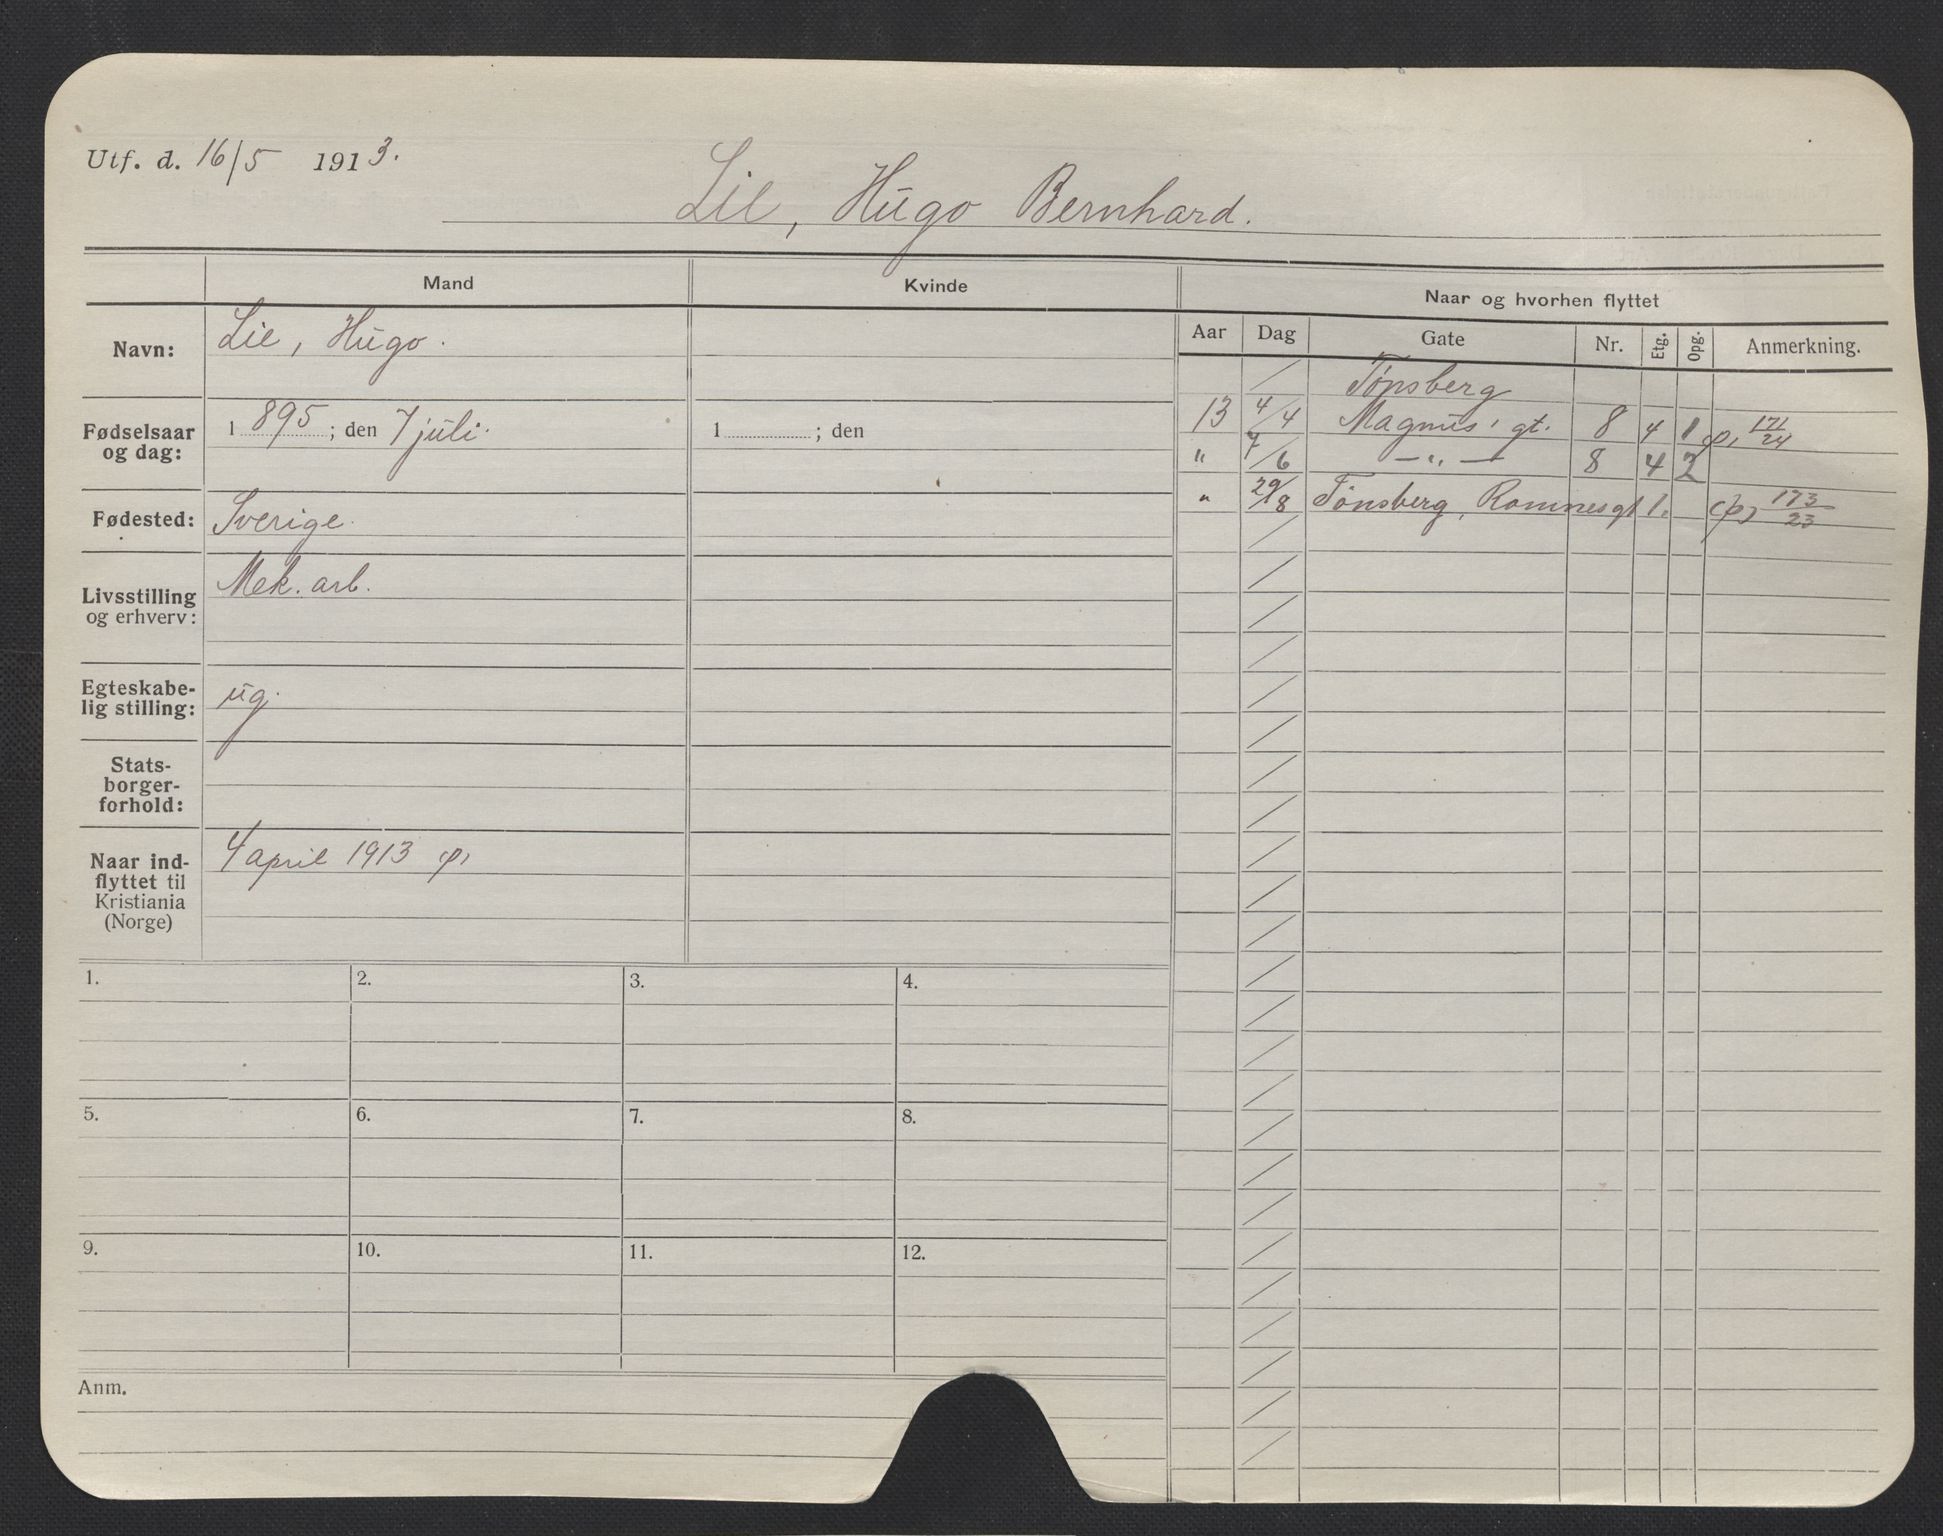 Utf. d. 16/5 1913.
Lie, Hugo Bernhard.
Mand
Kvinde
Naar og hvorhen flyttet
Aar Dag Gate Nr. Etg. Opg. Anmerkning.
Navn: Lie, Hugo.
Fødselsaar og dag: 1895; den 7 juli. 1 ; den
Fødested: Sverige.
Livsstilling og erhverv: Mek. arb.
Egteskabe-
lig stilling: ug.
Stats-
borger-
forhold:
Naar ind-
flyttet til
Kristiania
(Norge) 4 april 1913
Tønsberg
13 4/4 Magnus' gt. 8 4 1 171/24
" 7/6 — " — 8 4 2
" 29/8 Tønsberg, Romnesgt 1. 173/23
1. 2. 3. 4.
5. 6. 7. 8.
9. 10. 11. 12.
Anm.